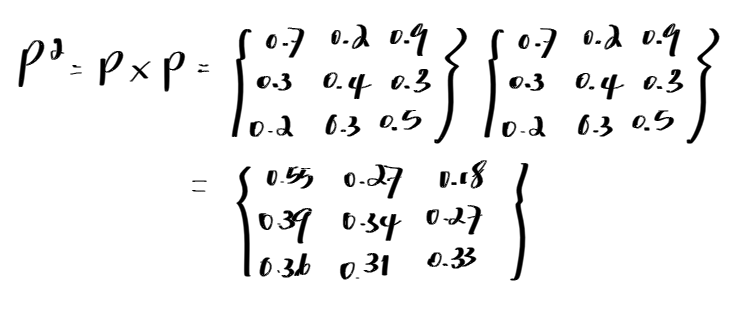 P² = P × P = { 0.7 0.2 0.9 } { 0.7 0.2 0.9 }
0.3 0.4 0.3 0.3 0.4 0.3
0.2 0.3 0.5 0.2 0.3 0.5
= { 0.55 0.27 0.18 }
0.39 0.34 0.27
0.36 0.31 0.33